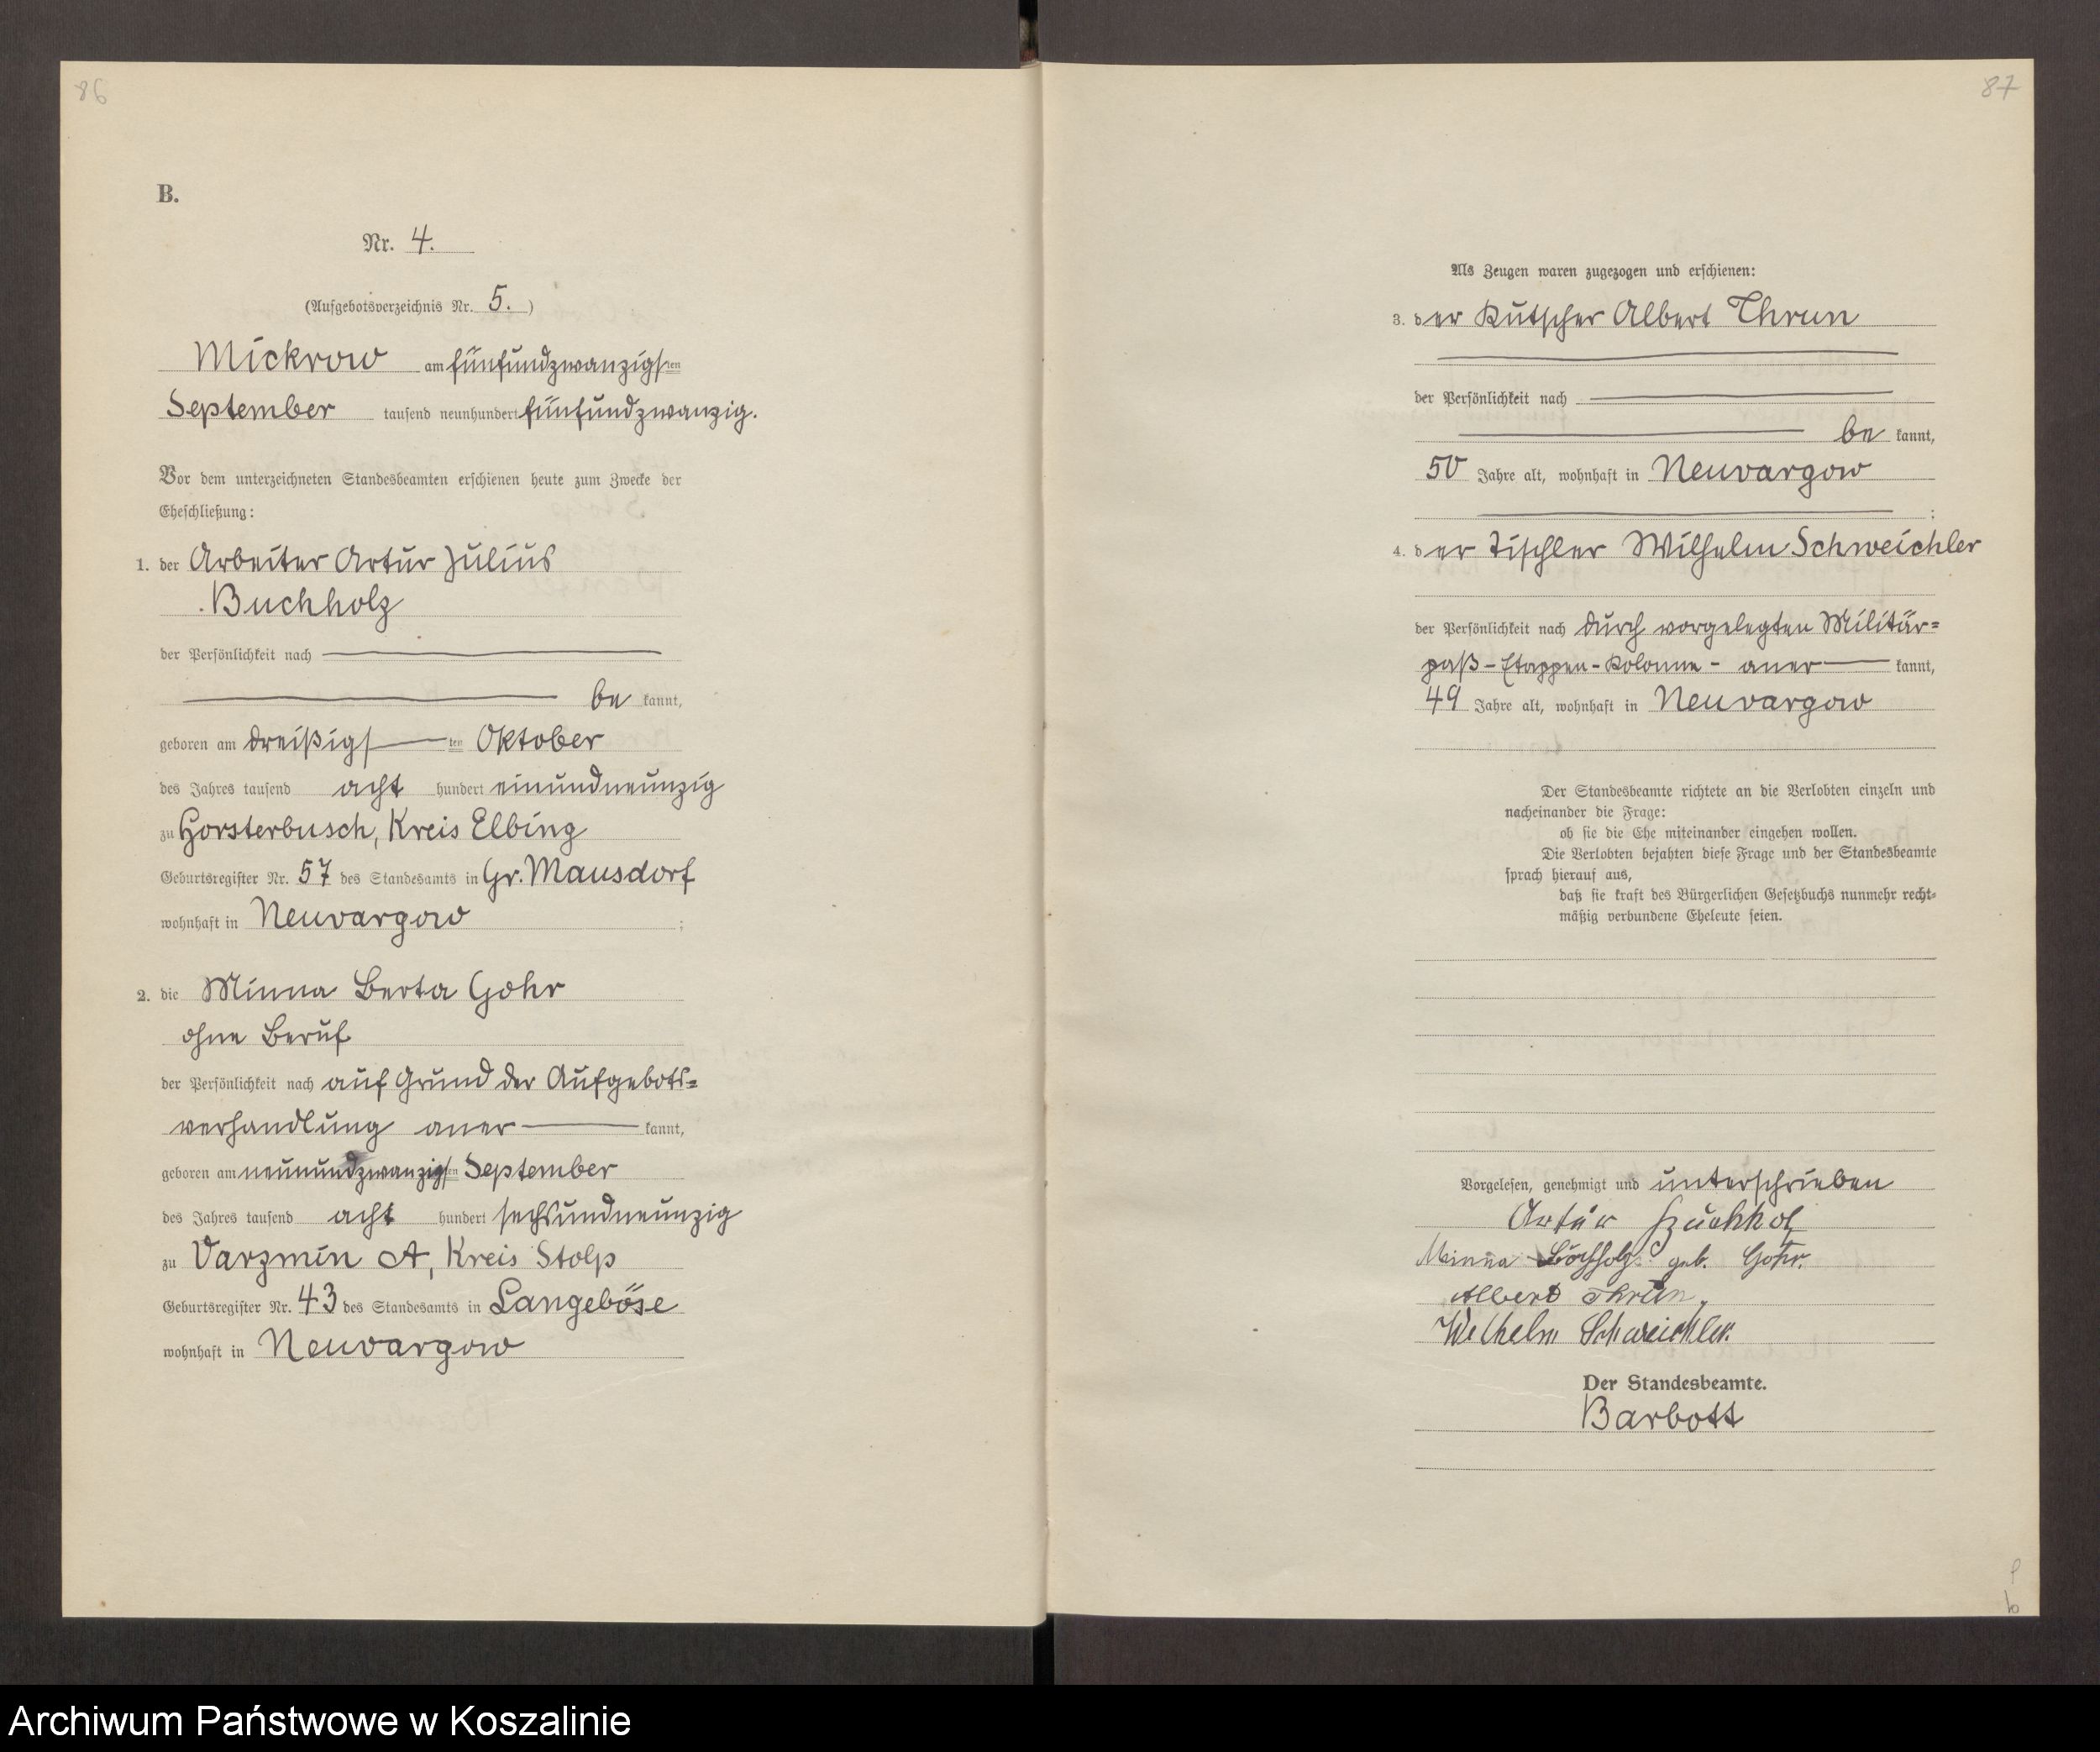 86
B.
Nr. 4.
(Aufgebotsverzeichnis Nr. 5.)
Mickrow am fünfundzwanzigsten
September tausend neunhundert fünfundzwanzig.
Vor dem unterzeichneten Standesbeamten erschienen heute zum Zwecke der
Eheschließung:
1. der Arbeiter Artur Julius
Buchholz
der Persönlichkeit nach
be kannt,
geboren am dreißigsten Oktober
des Jahres tausend acht hundert einundneunzig
zu Horsterbusch, Kreis Elbing
Geburtsregister Nr. 57 des Standesamts in Gr. Mausdorf
wohnhaft in Neuvargow ;
2. die Minna Berta Gohr
ohne Beruf
der Persönlichkeit nach auf Grund der Aufgebots=
verhandlung aner kannt,
geboren am neunundzwanzigsten September
des Jahres tausend acht hundert sechsundneunzig
zu Varzmin A, Kreis Stolp
Geburtsregister Nr. 43 des Standesamts in Langeböse
wohnhaft in Neuvargow
87
Als Zeugen waren zugezogen und erschienen:
3. der Kutscher Albert Thrun
der Persönlichkeit nach
be kannt,
50 Jahre alt, wohnhaft in Neuvargow
;
4. der Tischler Wilhelm Schweichler
der Persönlichkeit nach durch vorgelegten Militär=
paß-Etappen-Kolonne- aner kannt,
49 Jahre alt, wohnhaft in Neuvargow
Der Standesbeamte richtete an die Verlobten einzeln und
nacheinander die Frage:
ob sie die Ehe miteinander eingehen wollen.
Die Verlobten bejahten diese Frage und der Standesbeamte
sprach hierauf aus,
daß sie kraft des Bürgerlichen Gesetzbuchs nunmehr recht=
mäßig verbundene Eheleute seien.
Vorgelesen, genehmigt und unterschrieben
Artur
Minna Buchholz geb. Gohr.
Albert Thrun,
Wilhelm Schweichler.
Der Standesbeamte.
Barbott
Archiwum Państwowe w Koszalinie